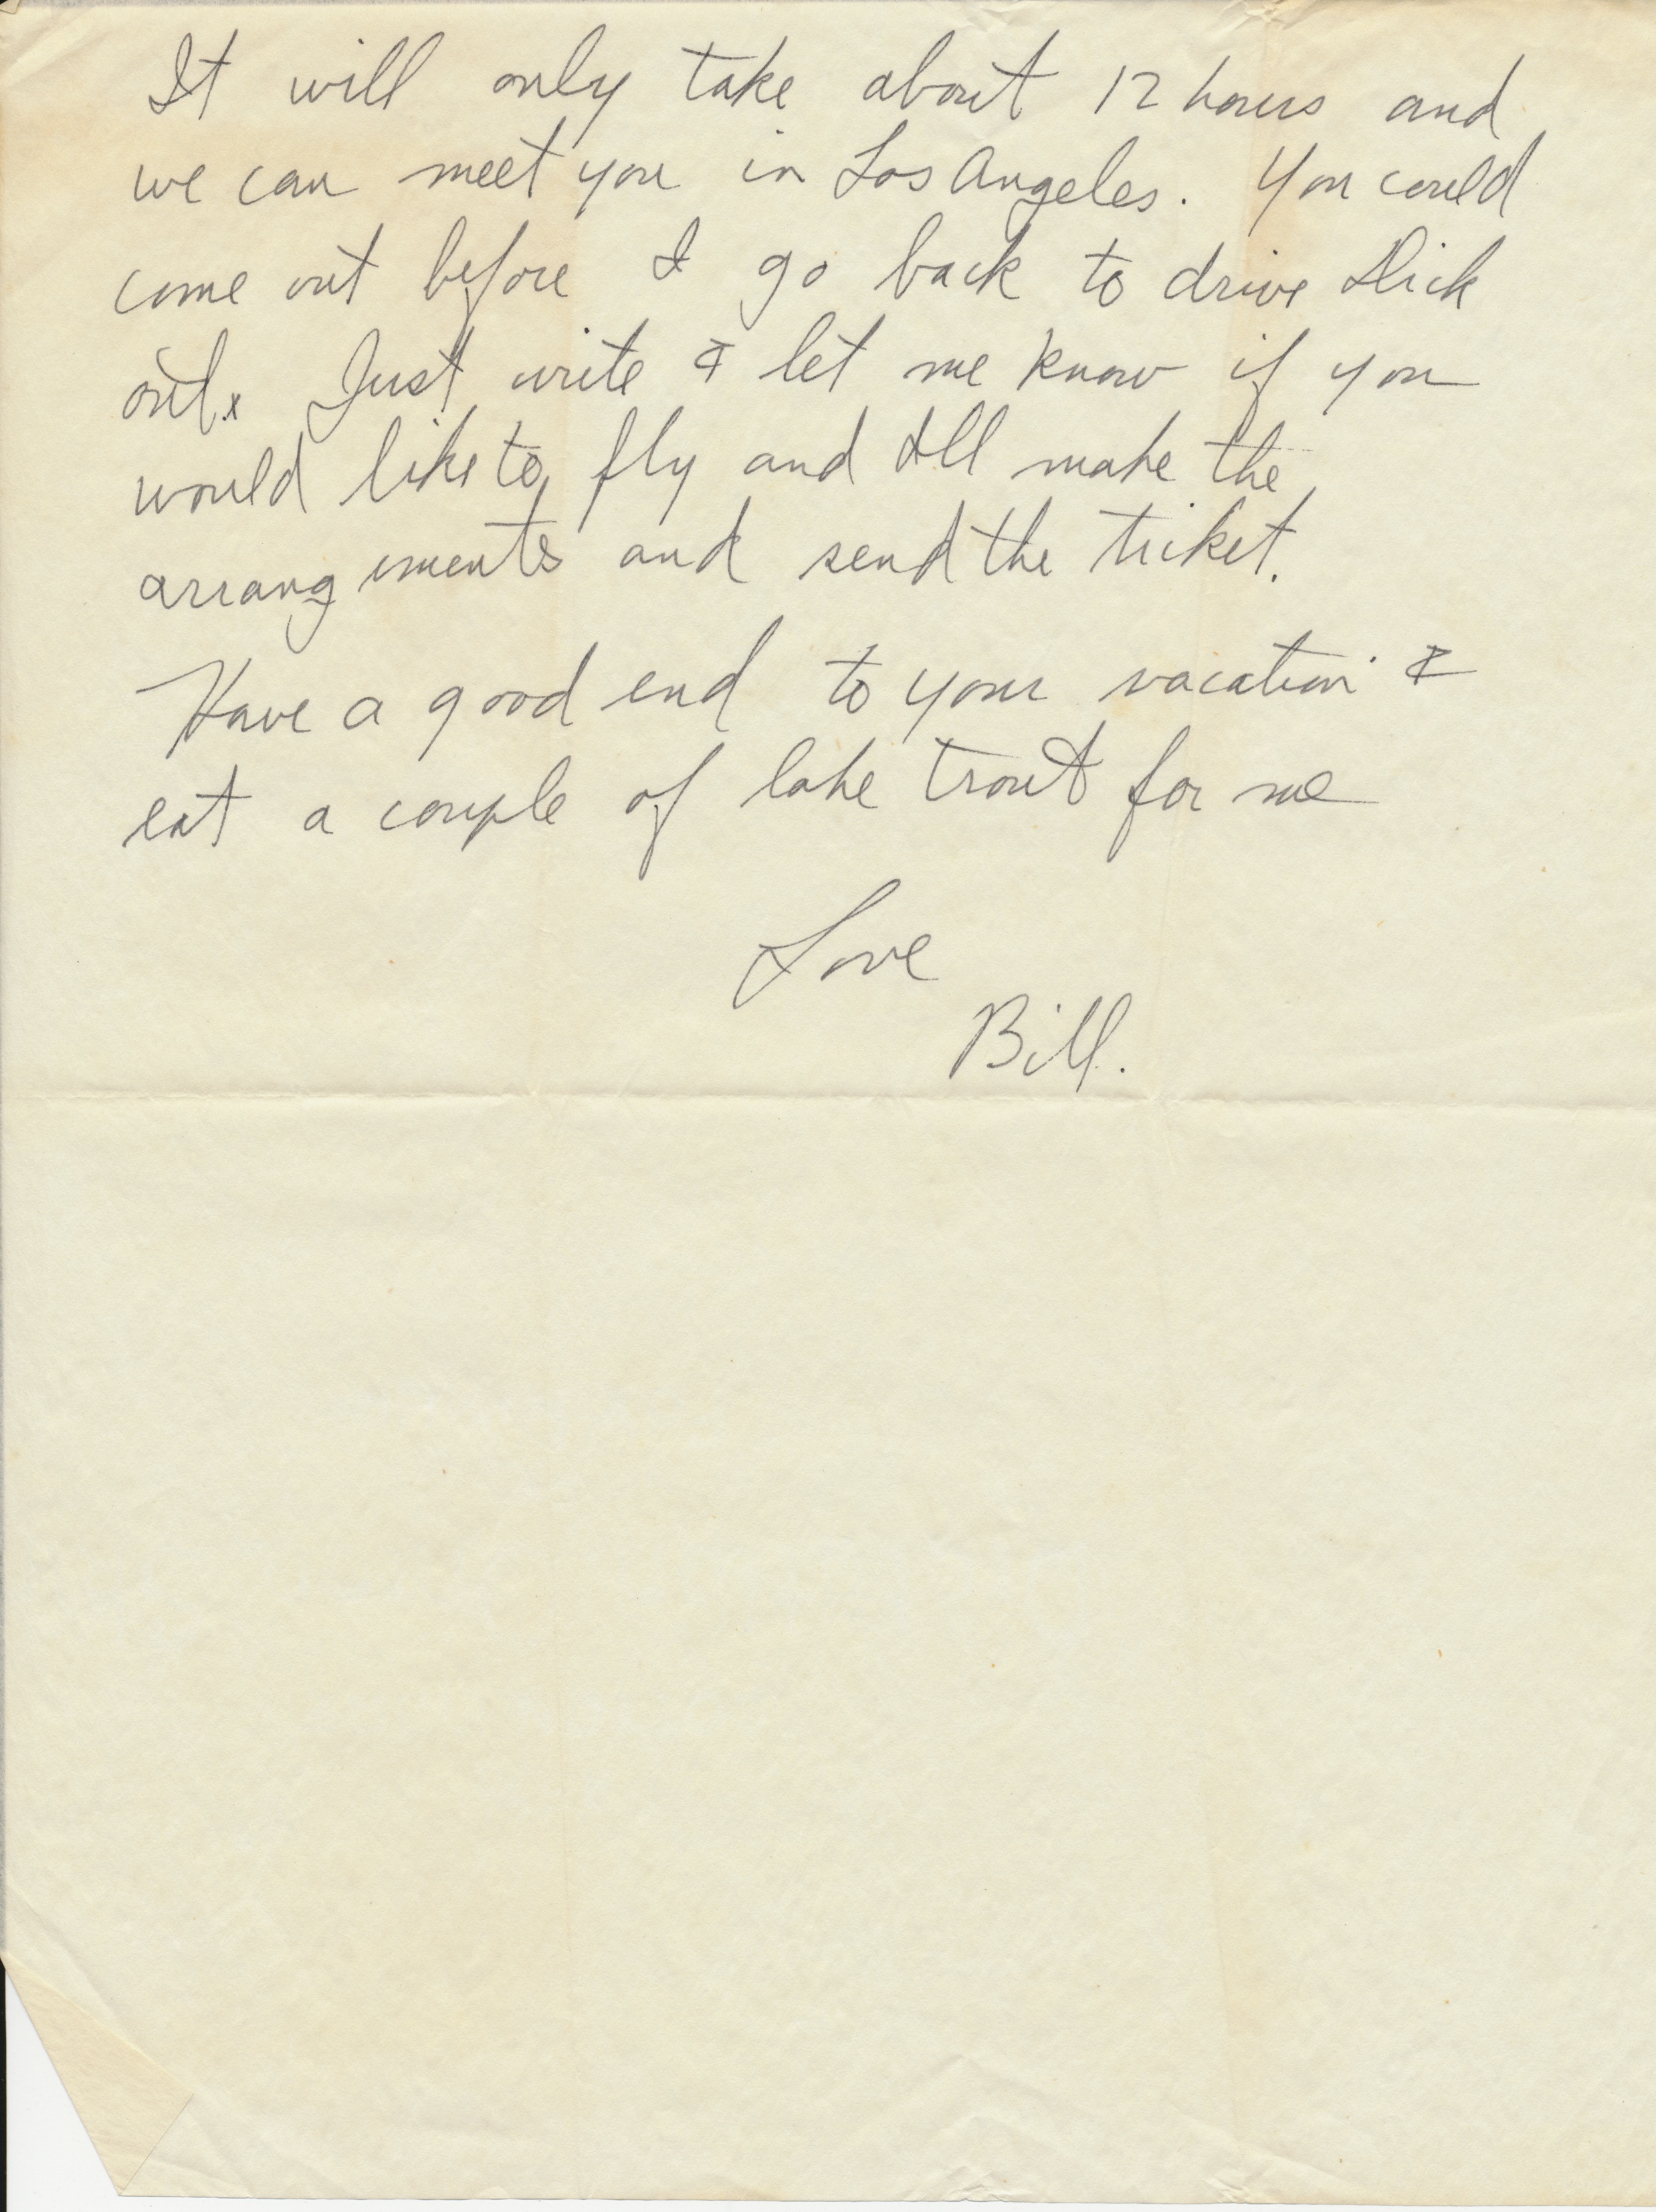 It will only take about 12 hours and
we can meet you in Los Angeles. You could
come out before I go back to drive Dick
out. Just write & let me know if you
would like to fly and Ill make the
arrangements and send the ticket.
Have a good end to your vacation &
eat a couple of lake trout for me
Love
Bill.